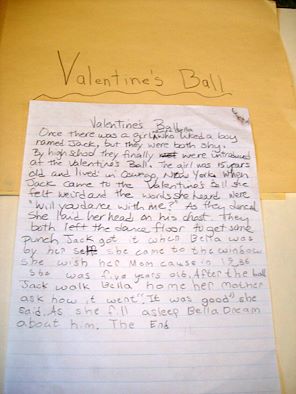 Valentine's Ball
Valentine's Ball
Once there was a girl who liked a boy
named Jack, but they were both shy.
By high school they finally were introduced
at the Valentine's Ball. The girl was 15 years
old and lived in Oswego, New York. When
Jack came to the Valentine's Ball she
felt weird and the words she heard were
"Will you dance with me?" As they danced
She laid her head on his chest. They
both left the dance floor to get some
punch Jack got it when Bella was
by her self she came to the window
she wish her mom cause in
She was five years old. After the ball
Jack walk Bella home her mother
ask how it went "It was good" she
said. As she fill asleep Bella Dream
about him. The End